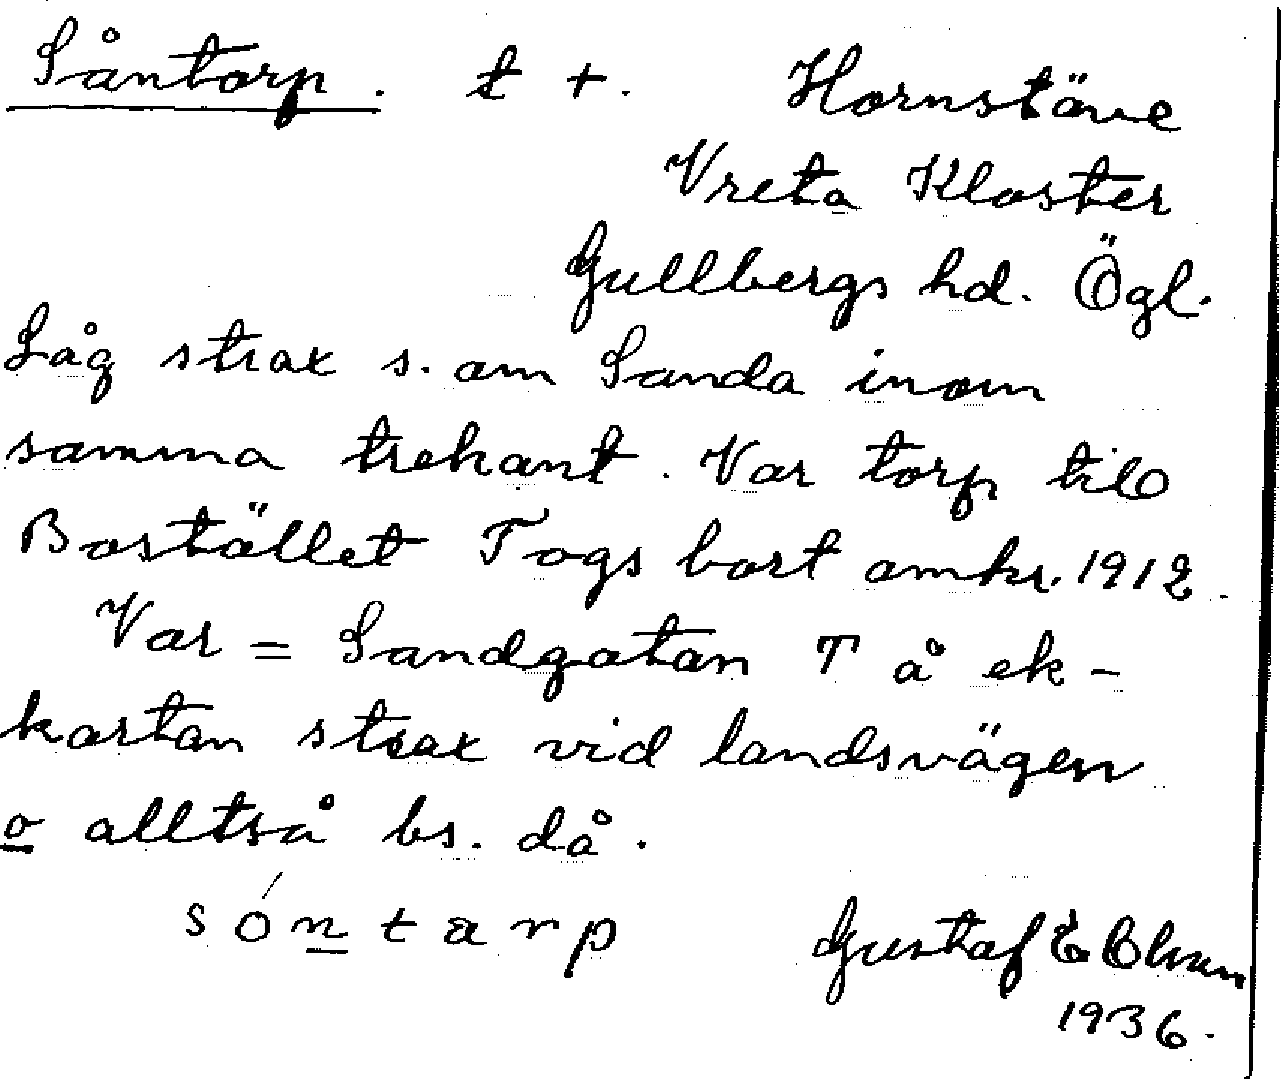 Såntorp. t +. Hornstäve
Vreta Kloster
Gullbergs hd. Ögl.
Låg strax s. om Sanda inom
samma trekant. Var torp till
Bostället Togs bort omkr. 1912.
Var = Sandgatan T å ek-
kartan strax vid landsvägen
o alltså bs. då.
sóntarp Gustaf E Olson
1936.